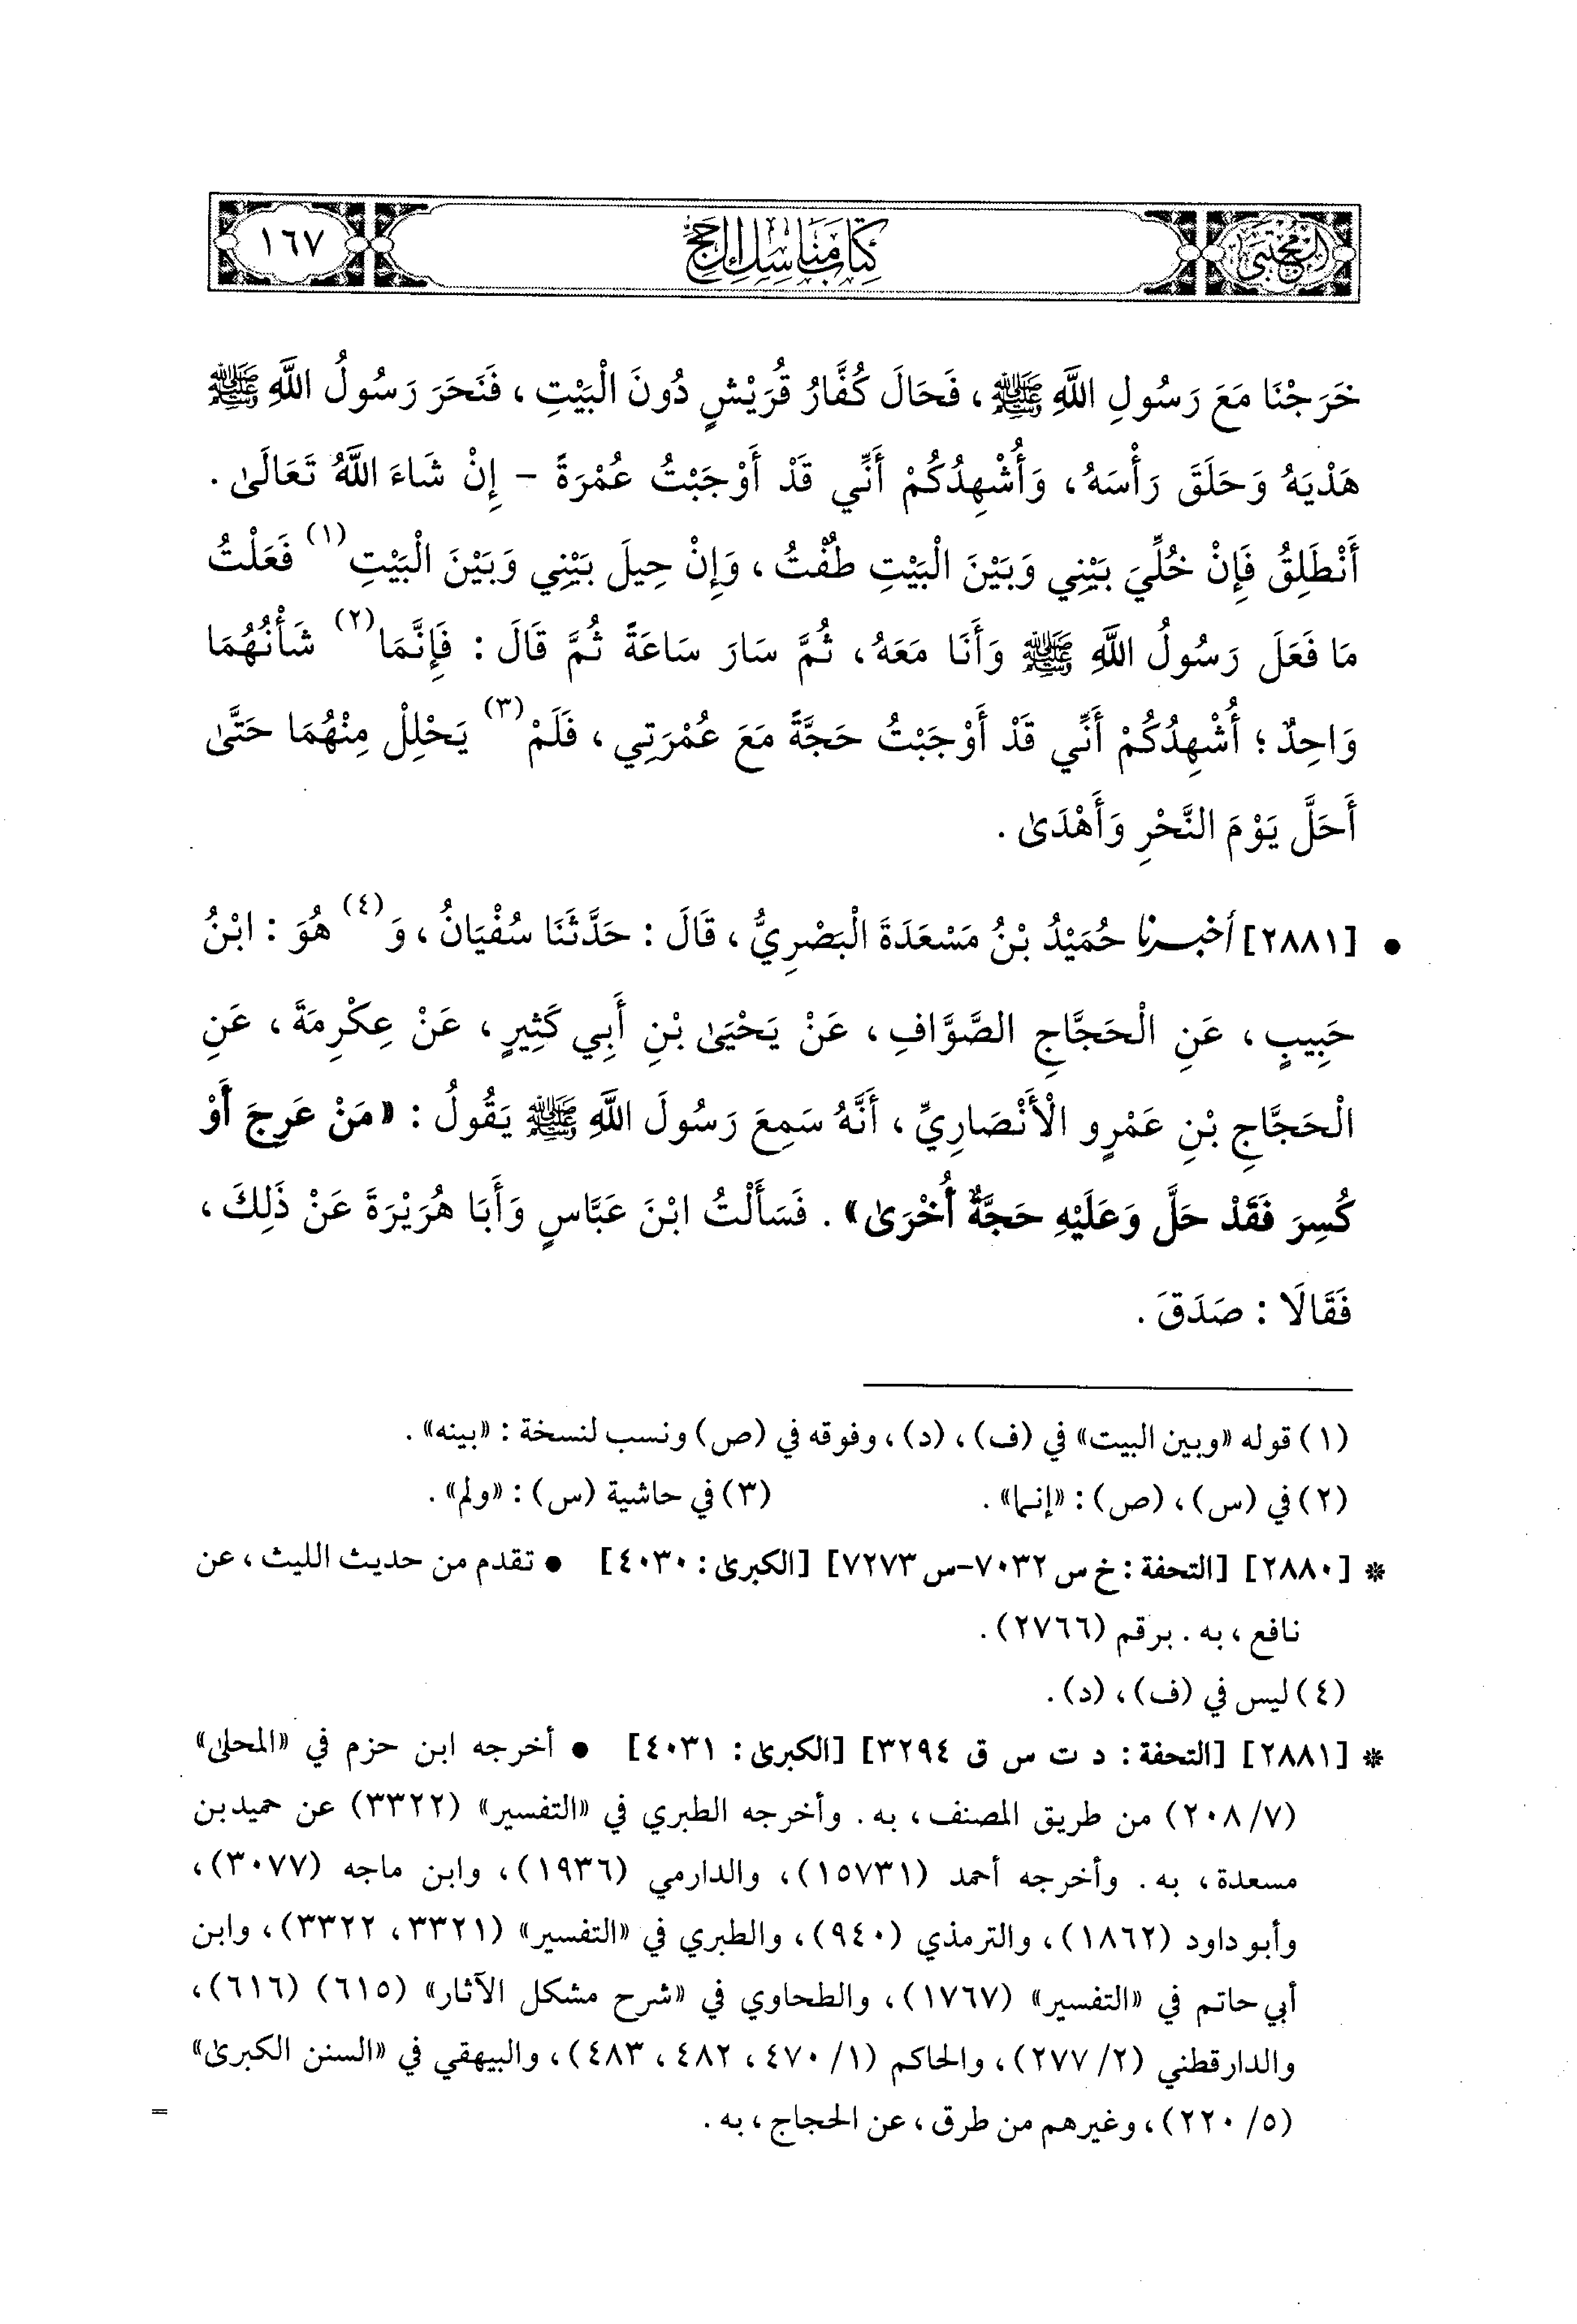 المجتبى
كتاب مناسك الحج
١٦٧
خَرَجْنَا مَعَ رَسُولِ اللَّهِ ﷺ، فَحَالَ كُفَّارُ قُرَيْشٍ دُونَ الْبَيْتِ، فَنَحَرَ رَسُولُ اللَّهِ ﷺ
هَدْيَهُ وَحَلَقَ رَأْسَهُ، وَأُشْهِدُكُمْ أَنِّي قَدْ أَوْجَبْتُ عُمْرَةً - إِنْ شَاءَ اللَّهُ تَعَالَىٰ.
أَنْطَلِقُ فَإِنْ خُلِّيَ بَيْنِي وَبَيْنَ الْبَيْتِ طُفْتُ، وَإِنْ حِيلَ بَيْنِي وَبَيْنَ الْبَيْتِ(١) فَعَلْتُ
مَا فَعَلَ رَسُولُ اللَّهِ ﷺ وَأَنَا مَعَهُ، ثُمَّ سَارَ سَاعَةً ثُمَّ قَالَ: فَإِنَّمَا(٢) شَأْنُهُمَا
وَاحِدٌ؛ أُشْهِدُكُمْ أَنِّي قَدْ أَوْجَبْتُ حَجَّةً مَعَ عُمْرَتِي، فَلَمْ(٣) يَحْلِلْ مِنْهُمَا حَتَّىٰ
أَحَلَّ يَوْمَ النَّحْرِ وَأَهْدَىٰ.
• [٢٨٨١] أخبرنا حُمَيْدُ بْنُ مَسْعَدَةَ الْبَصْرِيُّ، قَالَ: حَدَّثَنَا سُفْيَانُ، وَ(٤) هُوَ: ابْنُ
حَبِيبٍ، عَنِ الْحَجَّاجِ الصَّوَّافِ، عَنْ يَحْيَىٰ بْنِ أَبِي كَثِيرٍ، عَنْ عِكْرِمَةَ، عَنِ
الْحَجَّاجِ بْنِ عَمْرٍو الْأَنْصَارِيِّ، أَنَّهُ سَمِعَ رَسُولَ اللَّهِ ﷺ يَقُولُ: «مَنْ عَرِجَ أَوْ
كُسِرَ فَقَدْ حَلَّ وَعَلَيْهِ حَجَّةٌ أُخْرَىٰ». فَسَأَلْتُ ابْنَ عَبَّاسٍ وَأَبَا هُرَيْرَةَ عَنْ ذَلِكَ،
فَقَالَا: صَدَقَ.
(١) قوله «وبين البيت» في (ف)، (د)، وفوقه في (ص) ونسب لنسخة: «بينه».
(٢) في (س)، (ص): «إنما». (٣) في حاشية (س): «ولم».
* [٢٨٨٠] [التحفة: خ س ٧٠٣٢-س ٧٢٧٣] [الكبرىٰ: ٤٠٣٠] • تقدم من حديث الليث، عن
نافع، به. برقم (٢٧٦٦).
(٤) ليس في (ف)، (د).
* [٢٨٨١] [التحفة: د ت س ق ٣٢٩٤] [الكبرىٰ: ٤٠٣١] • أخرجه ابن حزم في «المحلىٰ»
(٧/ ٢٠٨) من طريق المصنف، به. وأخرجه الطبري في «التفسير» (٣٣٢٢) عن حميد بن
مسعدة، به. وأخرجه أحمد (١٥٧٣١)، والدارمي (١٩٣٦)، وابن ماجه (٣٠٧٧)،
وأبو داود (١٨٦٢)، والترمذي (٩٤٠)، والطبري في «التفسير» (٣٣٢١، ٣٣٢٢)، وابن
أبي حاتم في «التفسير» (١٧٦٧)، والطحاوي في «شرح مشكل الآثار» (٦١٥) (٦١٦)،
والدارقطني (٢/ ٢٧٧)، والحاكم (١/ ٤٧٠، ٤٨٢، ٤٨٣)، والبيهقي في «السنن الكبرىٰ»
(٥/ ٢٢٠)، وغيرهم من طرق، عن الحجاج، به.
=